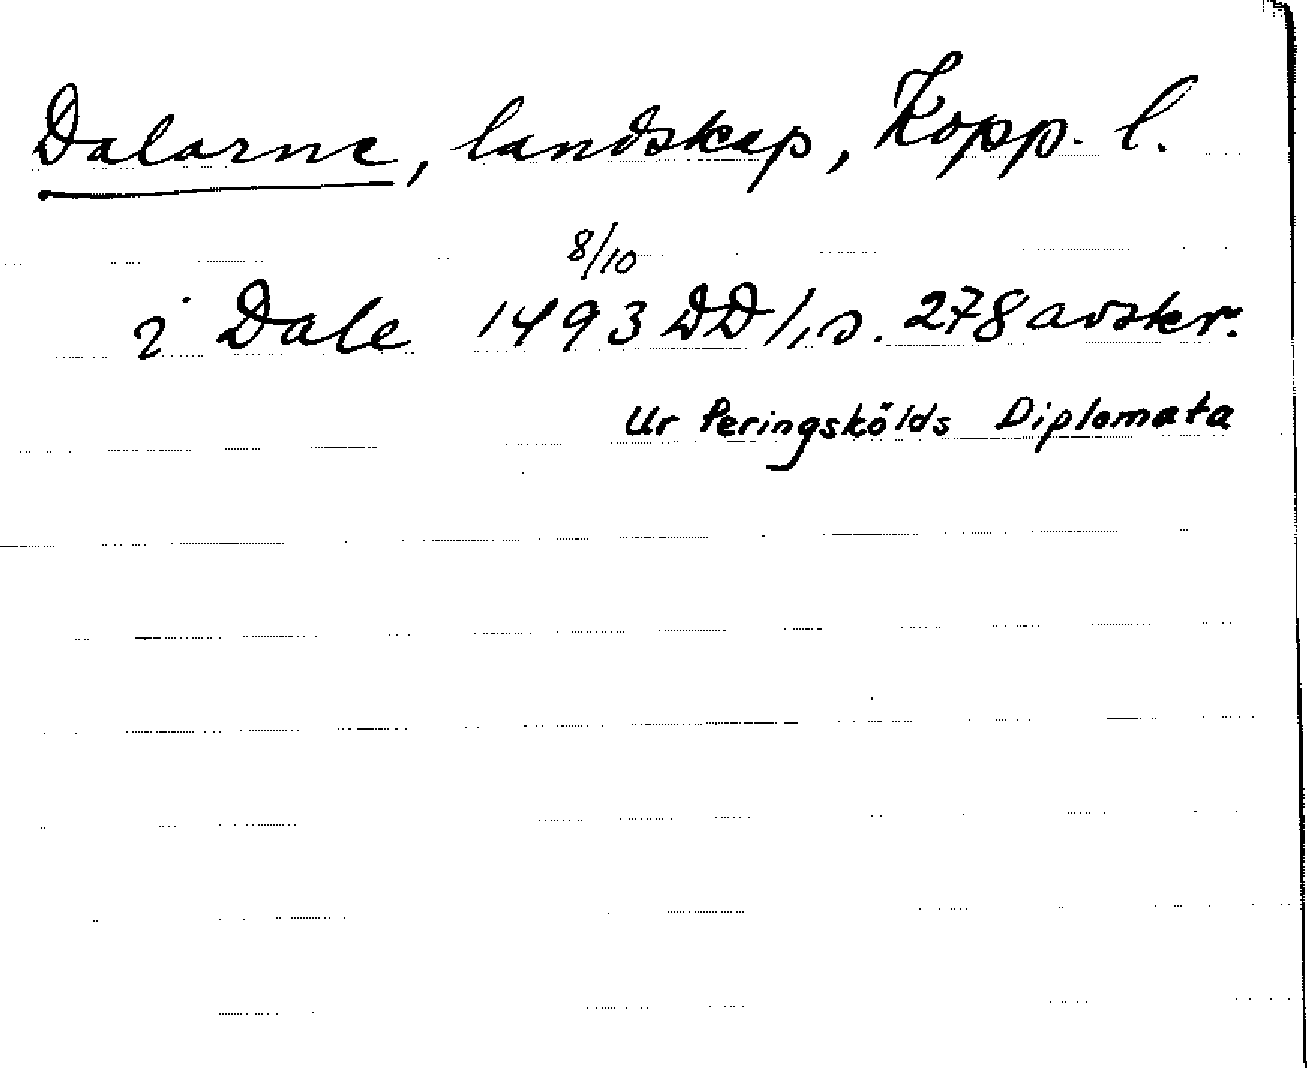 Dalarne, landskap, Kopp. l.
8/10
i Dale 1493 DD 1, s. 278 avskr.
Ur Peringskölds Diplomata